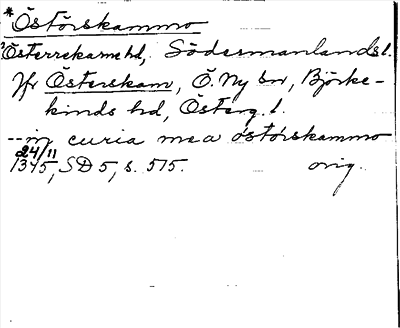 *Östörskammo
?Österrekarne hd, Södermanlands l.
Jfr Österskam, Ö. Ny sn, Björke-
kinds hd, Österg. l.
--- in curia mea østørskammo
24/11
1345, SD 5, s. 515. orig.